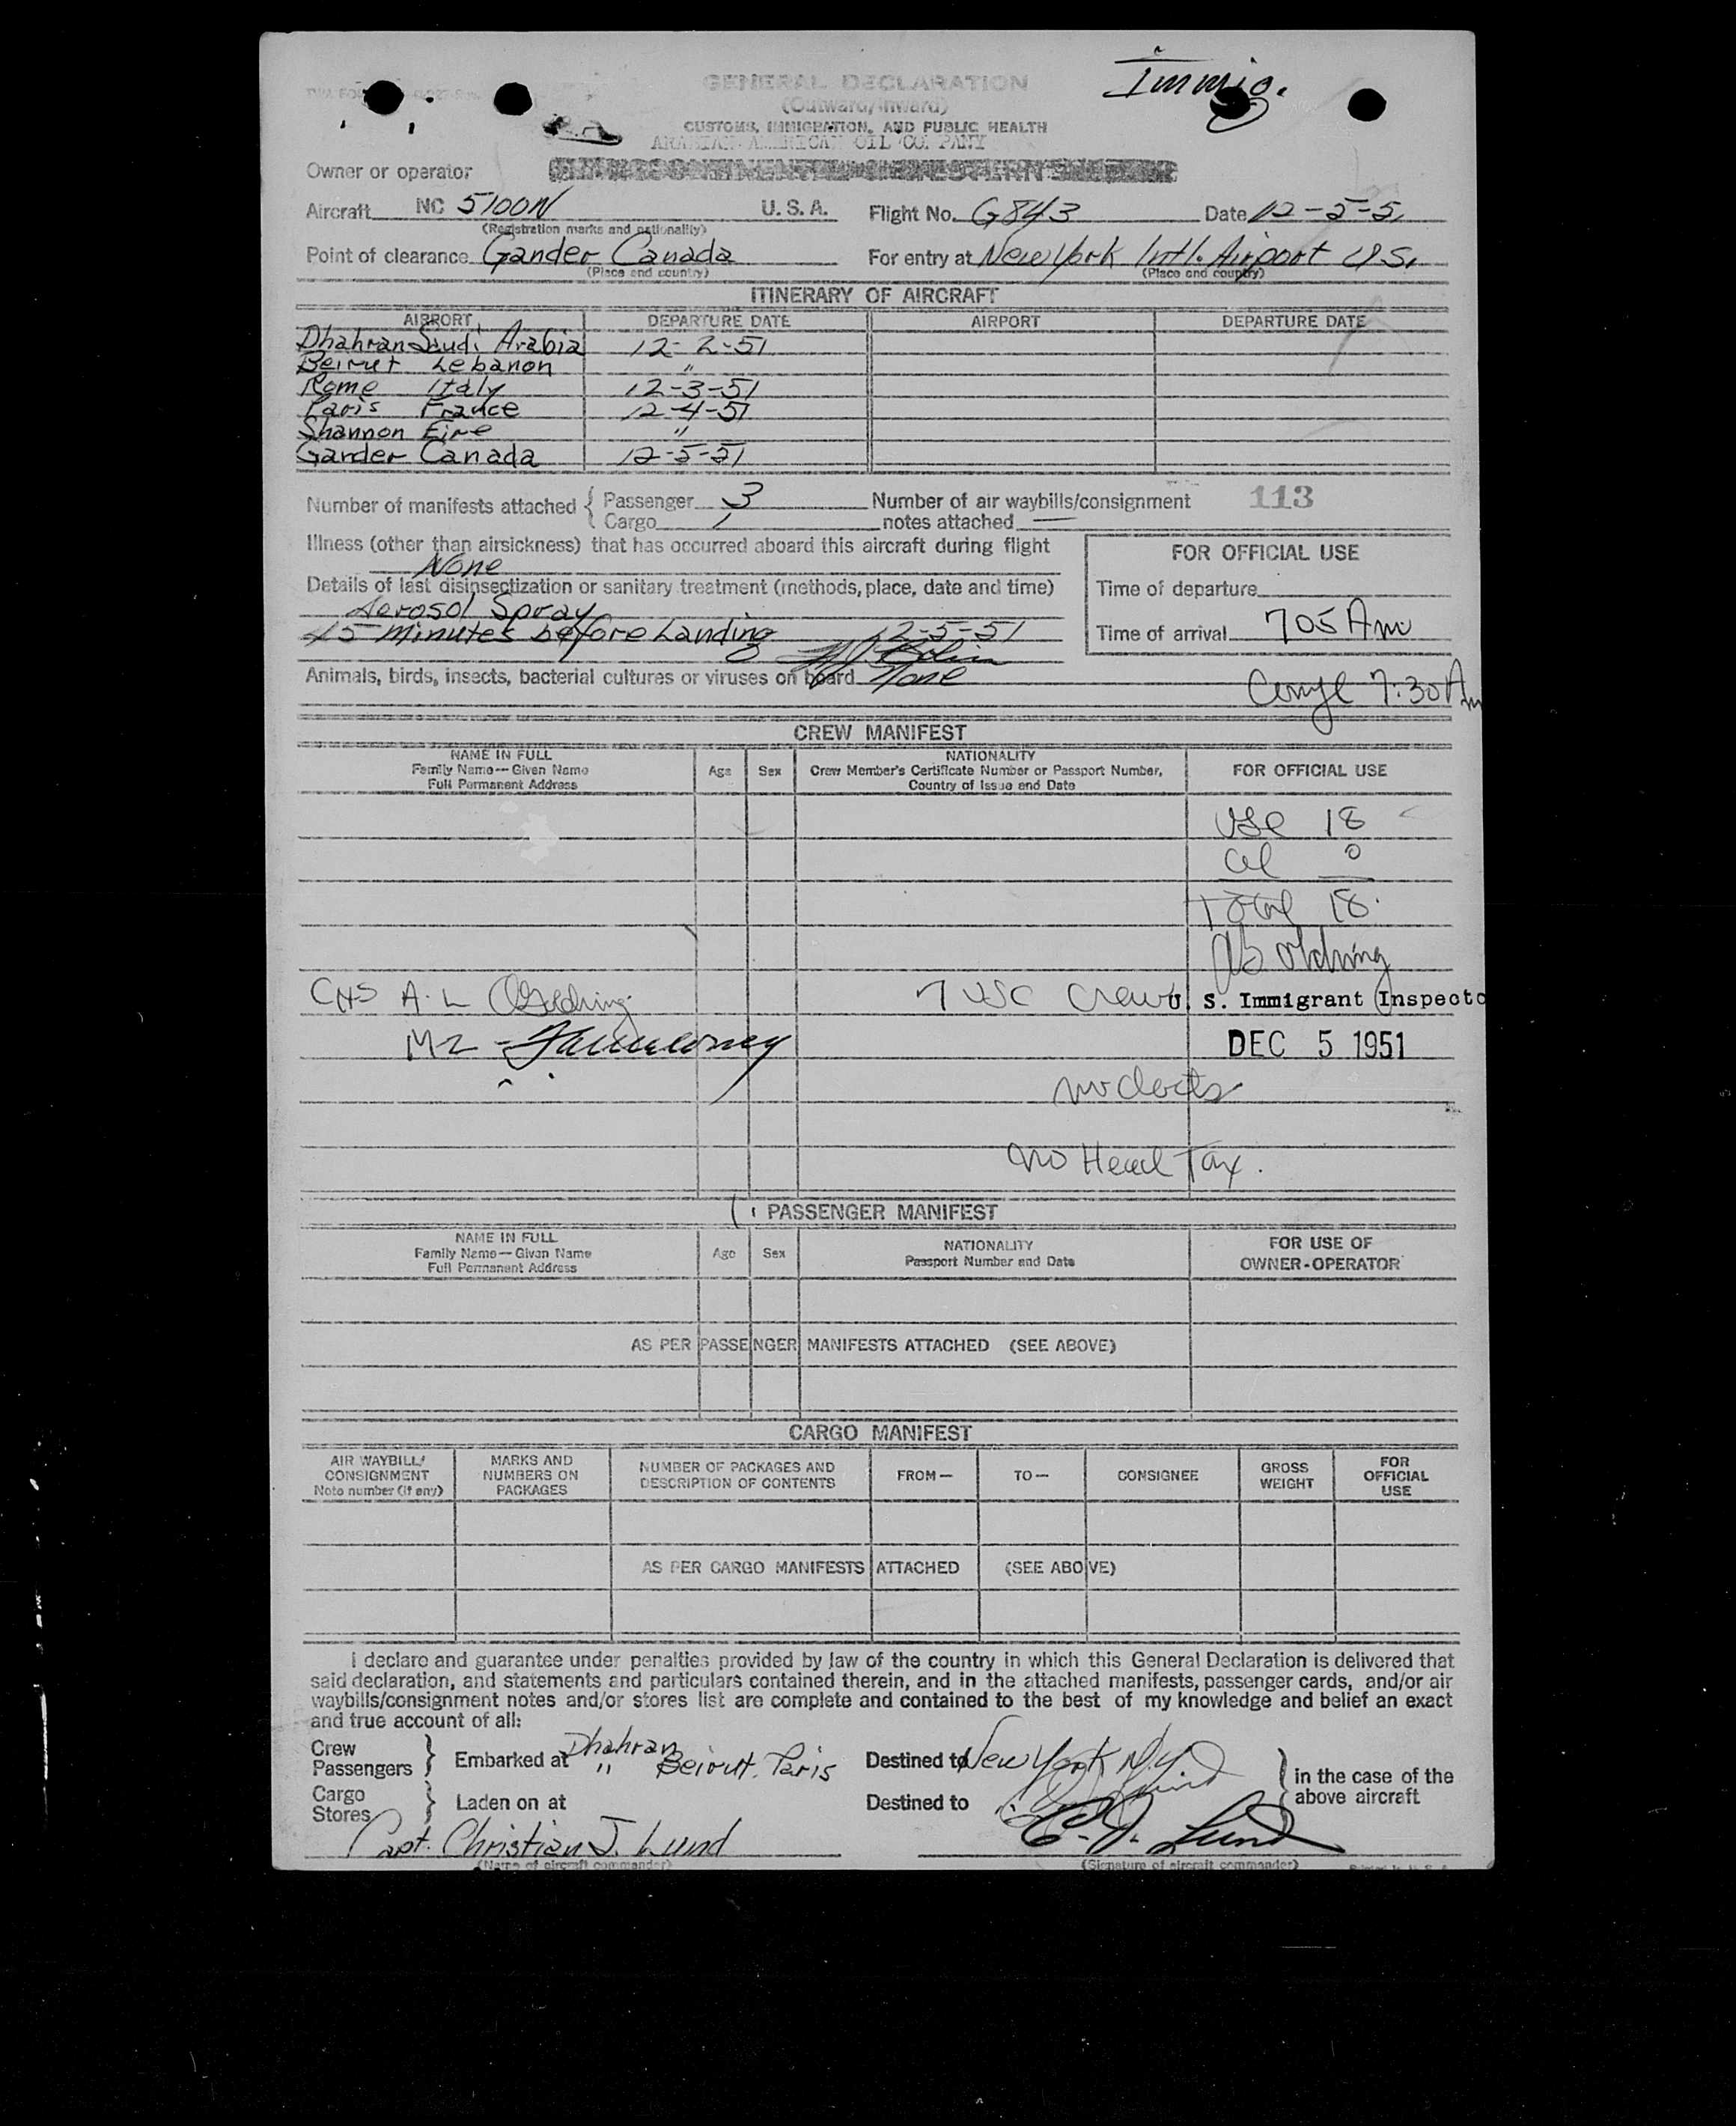 Immig.
GENERAL DECLARATION
(Outward/Inward)
CUSTOMS, IMMIGRATION, AND PUBLIC HEALTH
ARABIAN AMERICAN OIL COMPANY
Owner or operator
Aircraft NC 5100N U. S. A. Flight No. G843 Date 12-5-51
(Registration marks and nationality)
Point of clearance Gander Canada For entry at New York Intl. Airport U.S.
(Place and country) (Place and country)
ITINERARY OF AIRCRAFT
AIRPORT DEPARTURE DATE AIRPORT DEPARTURE DATE
Dhahran Saudi Arabia 12-2-51
Beirut Lebanon "
Rome Italy 12-3-51
Paris France 12-4-51
Shannon Eire "
Gander Canada 12-5-51
Number of manifests attached { Passenger 3 Number of air waybills/consignment 113
Cargo 1 notes attached —
Illness (other than airsickness) that has occurred aboard this aircraft during flight
None
FOR OFFICIAL USE
Details of last disinsectization or sanitary treatment (methods, place, date and time)
Time of departure
Aerosol Spray
45 minutes before Landing 12-5-51
Time of arrival 705 Am
Animals, birds, insects, bacterial cultures or viruses on board None
7:30 Am
CREW MANIFEST
NAME IN FULL Age Sex NATIONALITY FOR OFFICIAL USE
Family Name—Given Name Crew Member's Certificate Number or Passport Number,
Full Permanent Address Country of Issue and Date
USC 18
al 0
Total 18
CHS A. L. 7 USC Crew U. S. Immigrant Inspecto
DEC 5 1951
no docts
no Head Tax.
PASSENGER MANIFEST
NAME IN FULL Age Sex NATIONALITY FOR USE OF
Family Name—Given Name Passport Number and Date OWNER-OPERATOR
Full Permanent Address
AS PER PASSENGER MANIFESTS ATTACHED (SEE ABOVE)
CARGO MANIFEST
AIR WAYBILL/ MARKS AND NUMBER OF PACKAGES AND FROM— TO— CONSIGNEE GROSS FOR
CONSIGNMENT NUMBERS ON DESCRIPTION OF CONTENTS WEIGHT OFFICIAL
Note number (if any) PACKAGES USE
AS PER CARGO MANIFESTS ATTACHED (SEE ABOVE)
I declare and guarantee under penalties provided by law of the country in which this General Declaration is delivered that
said declaration, and statements and particulars contained therein, and in the attached manifests, passenger cards, and/or air
waybills/consignment notes and/or stores list are complete and contained to the best of my knowledge and belief an exact
and true account of all:
Crew } Embarked at Dhahran Destined to New York N.Y. } in the case of the
Passengers " Beirut, Paris
Cargo } Laden on at Destined to above aircraft
Stores
Capt. Christian J. Lund C. J. Lund
(Name of aircraft commander) (Signature of aircraft commander)